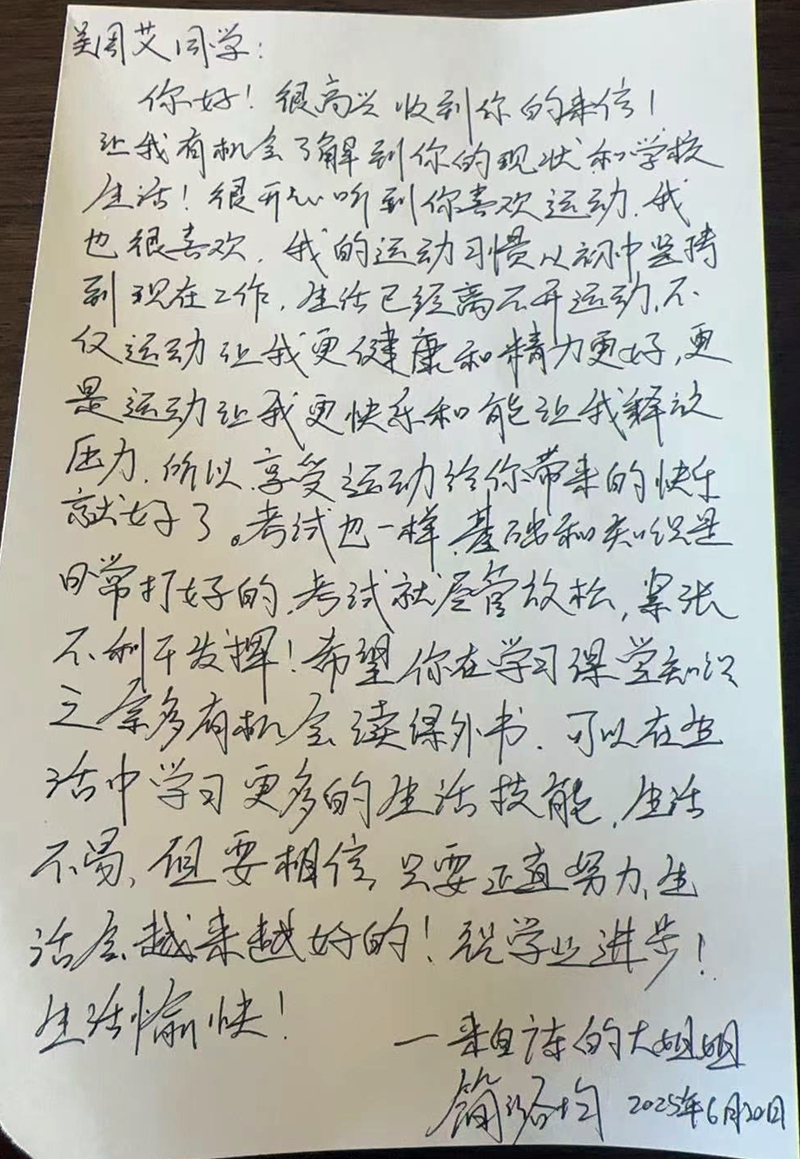 吴周艾同学：
你好！很高兴收到你的来信！
让我有机会了解到你的现状和学校
生活！很开心听到你喜欢运动，我
也很喜欢，我的运动习惯从初中坚持
到现在工作，生活已经离不开运动，不
仅运动让我更健康和精力更好，更
是运动让我更快乐和能让我释放
压力，所以享受运动给你带来的快乐
就好了。考试也一样，基础和知识是
日常打好的，考试就尽管放松，紧张
不利于发挥！希望你在学习课堂知识
之余多有机会读课外书，可以在生
活中学习更多的生活技能，生活
不易，但要相信，只要正直努力，生
活会越来越好的！祝学业进步！
生活愉快！
一来自 的大姐姐
简 均 2025年6月20日